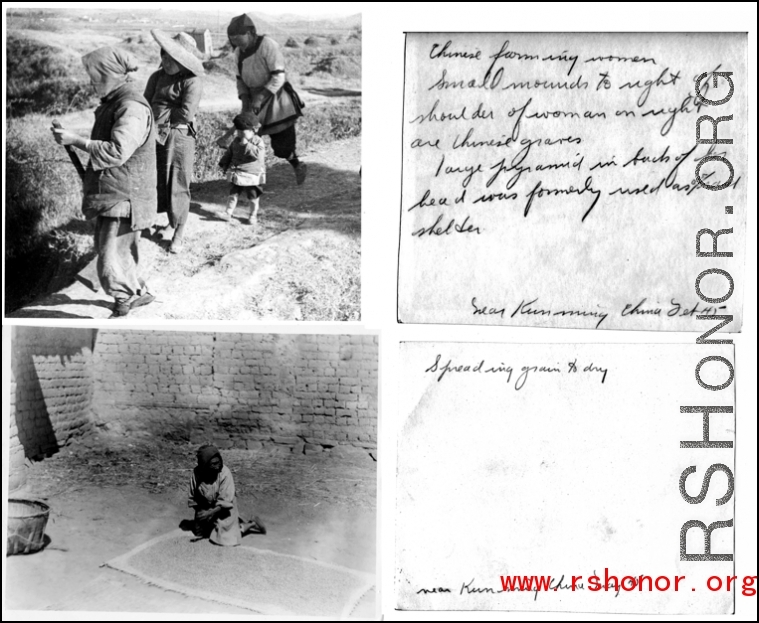 Chinese farming women
Small mounds to right of
shoulder of woman on right
are Chinese graves
large pyramid in back of
head was formerly used as
shelter
near Kunming China Feb 45
Spreading grain to dry
near Kunming China
www.rshonor.org
RSHONOR.ORG